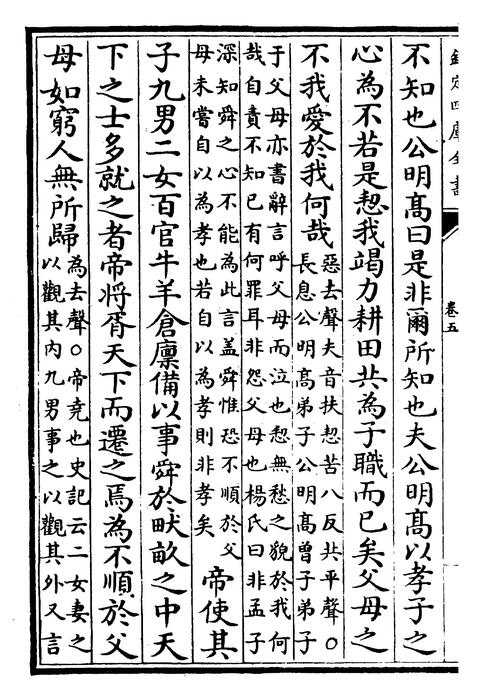 欽定四庫全書
卷五
不知也公明髙曰是非爾所知也夫公明髙以孝子之
心為不若是恝我竭力耕田共為子職而已矣父母之
不我愛於我何哉
惡去聲夫音扶恝苦八反共平聲○
長息公明髙弟子公明髙曾子弟子
于父母亦書辭言呼父母而泣也恝無愁之貌於我何
哉自責不知已有何罪耳非怨父母也楊氏曰非孟子
深知舜之心不能為此言盖舜惟恐不順於父
母未嘗自以為孝也若自以為孝則非孝矣
帝使其
子九男二女百官牛羊倉廩備以事舜於畎畝之中天
下之士多就之者帝將胥天下而遷之焉為不順於父
母如窮人無所歸
為去聲○帝堯也史記云二女妻之
以觀其内九男事之以觀其外又言